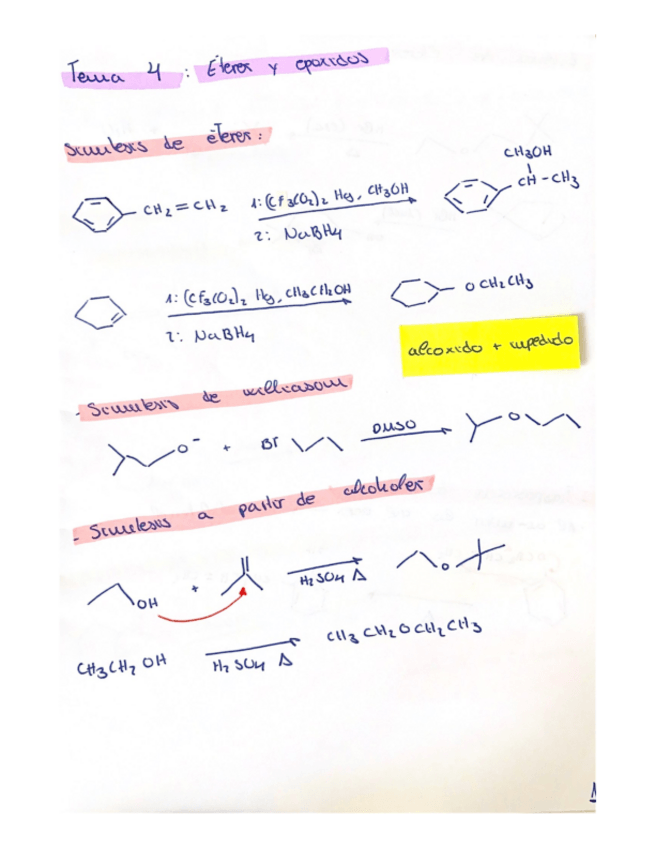 Tema 4 : Éteres y epoxidos
Síntesis de éteres :
CH3OH
CH2 = CH2 1: (CF3CO2)2 Hg, CH3OH CH - CH3
2: NaBH4
1: (CF3CO2)2 Hg, CH3CH2OH O CH2CH3
2: NaBH4
alcoxido + impedido
- Síntesis de williasom
O- + Br DMSO O
- Síntesis a partir de alcoholes
OH + H2SO4 Δ O
CH3CH2OH H2SO4 Δ CH3CH2OCH2CH3